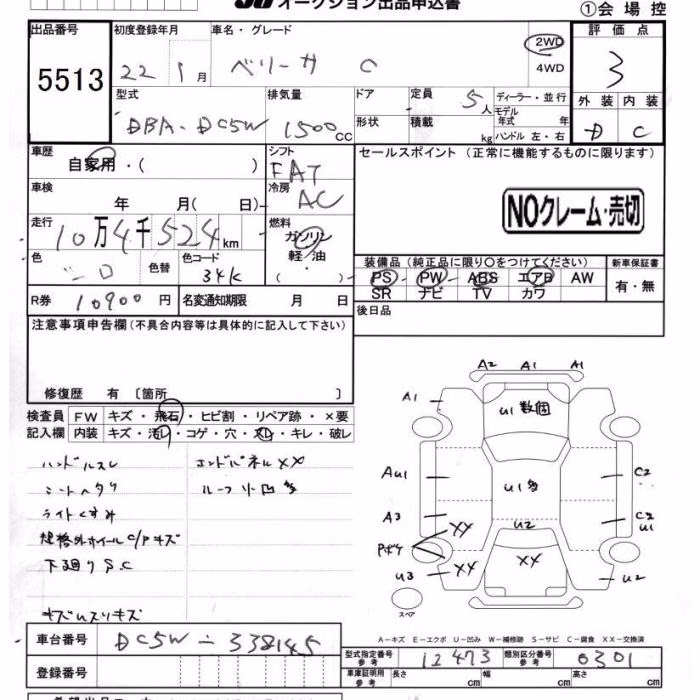 オークション出品申込書
①会場控
出品番号
5513
初度登録年月
22 1月
車名・グレード
ベリーサ C
2WD
4WD
評価点
3
外装 内装
D C
型式
DBA-DC5W
排気量
1500CC
ドア
形状
定員 5人
積載 kg
ディーラー・並行
モデル年式 年
ハンドル 左・右
車歴
自家用・( )
シフト
FAT
車検
年 月( 日)
冷房
AC
走行
10万4千524km
燃料
ガソリン
軽/油
( )
色
色替
色コード
34K
R券 10900円
名変通知期限 月 日
セールスポイント(正常に機能するものに限ります)
NOクレーム・売切
装備品(純正品に限り○をつけてください)
PS PW ABS エアB AW
SR ナビ TV カワ
新車保証書
有・無
後日品
注意事項申告欄(不具合内容等は具体的に記入して下さい)
修復歴 有〔箇所 〕
検査員 FW キズ・飛石・ヒビ割・リペア跡・×要
記入欄 内装 キズ・汚レ・コゲ・穴・スレ・キレ・破レ
ハンドルスレ
シートヘタリ
ライトくすみ
規格外ホイールC/Pキズ
下廻りS.C
キズヘコスリキズ
エンドパネルXX
ルーフ小凹多
A2 A1 A1
A1
U1数個
AU1
U1多
C2
A3
U2
C2
U1
XX
Pボケ
XX
XX
U3
U2
スペア
A-キズ E-エクボ U-凹み W-補修跡 S-サビ C-腐食 XX-交換済
車台番号
DC5W-338145
登録番号
型式指定番号 参考
12473
類別区分番号 参考
0301
車庫証明用 参考
長さ cm
幅 cm
高さ cm